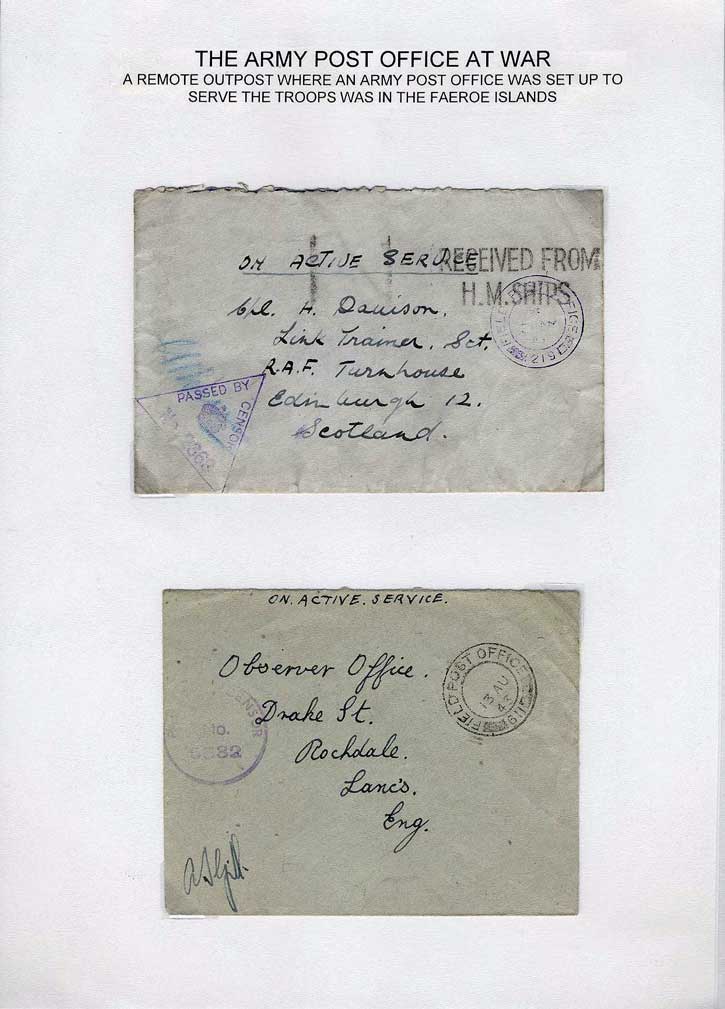 THE ARMY POST OFFICE AT WAR
A REMOTE OUTPOST WHERE AN ARMY POST OFFICE WAS SET UP TO
SERVE THE TROOPS WAS IN THE FAEROE ISLANDS
ON ACTIVE SERVICE
RECEIVED FROM
H.M. SHIPS
Cpl. H. Davison,
Link Trainer, Sct.
R.A.F. Turnhouse
Edinburgh 12.
Scotland.
FIELD OFFICE
219
PASSED BY CENSOR
No.
ON. ACTIVE. SERVICE.
Observer Office.
Drake St.
Rochdale.
Lanc's.
Eng.
FIELD POST OFFICE
13 AU
43
CENSOR
No.